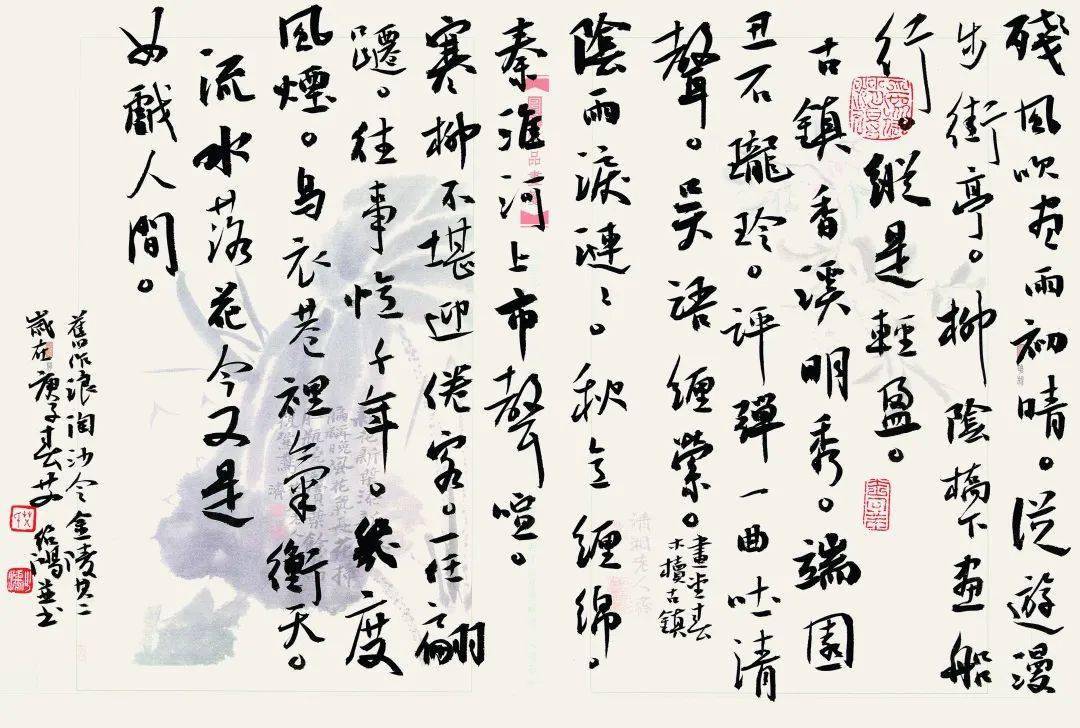 殘風吹盡雨初晴。從遊漫
步街亭。柳陰橋下畫船
行。縱是輕盈。
古鎮香溪明秀。端園
丑石瓏玲。評彈一曲吐清
聲。吳語纏縈。
畫堂春
木櫝古鎮
陰雨淚漣〻。秋意纏綿。
秦淮河上市聲喧。
寒柳不堪迎倦客。一任翩
躚。往事憶千年。幾度
風煙。烏衣巷裡氣衝天。
流水落花今又是
如戲人間。
舊作浪淘沙令金陵其二
歲在庚子春艾紹鴻並書